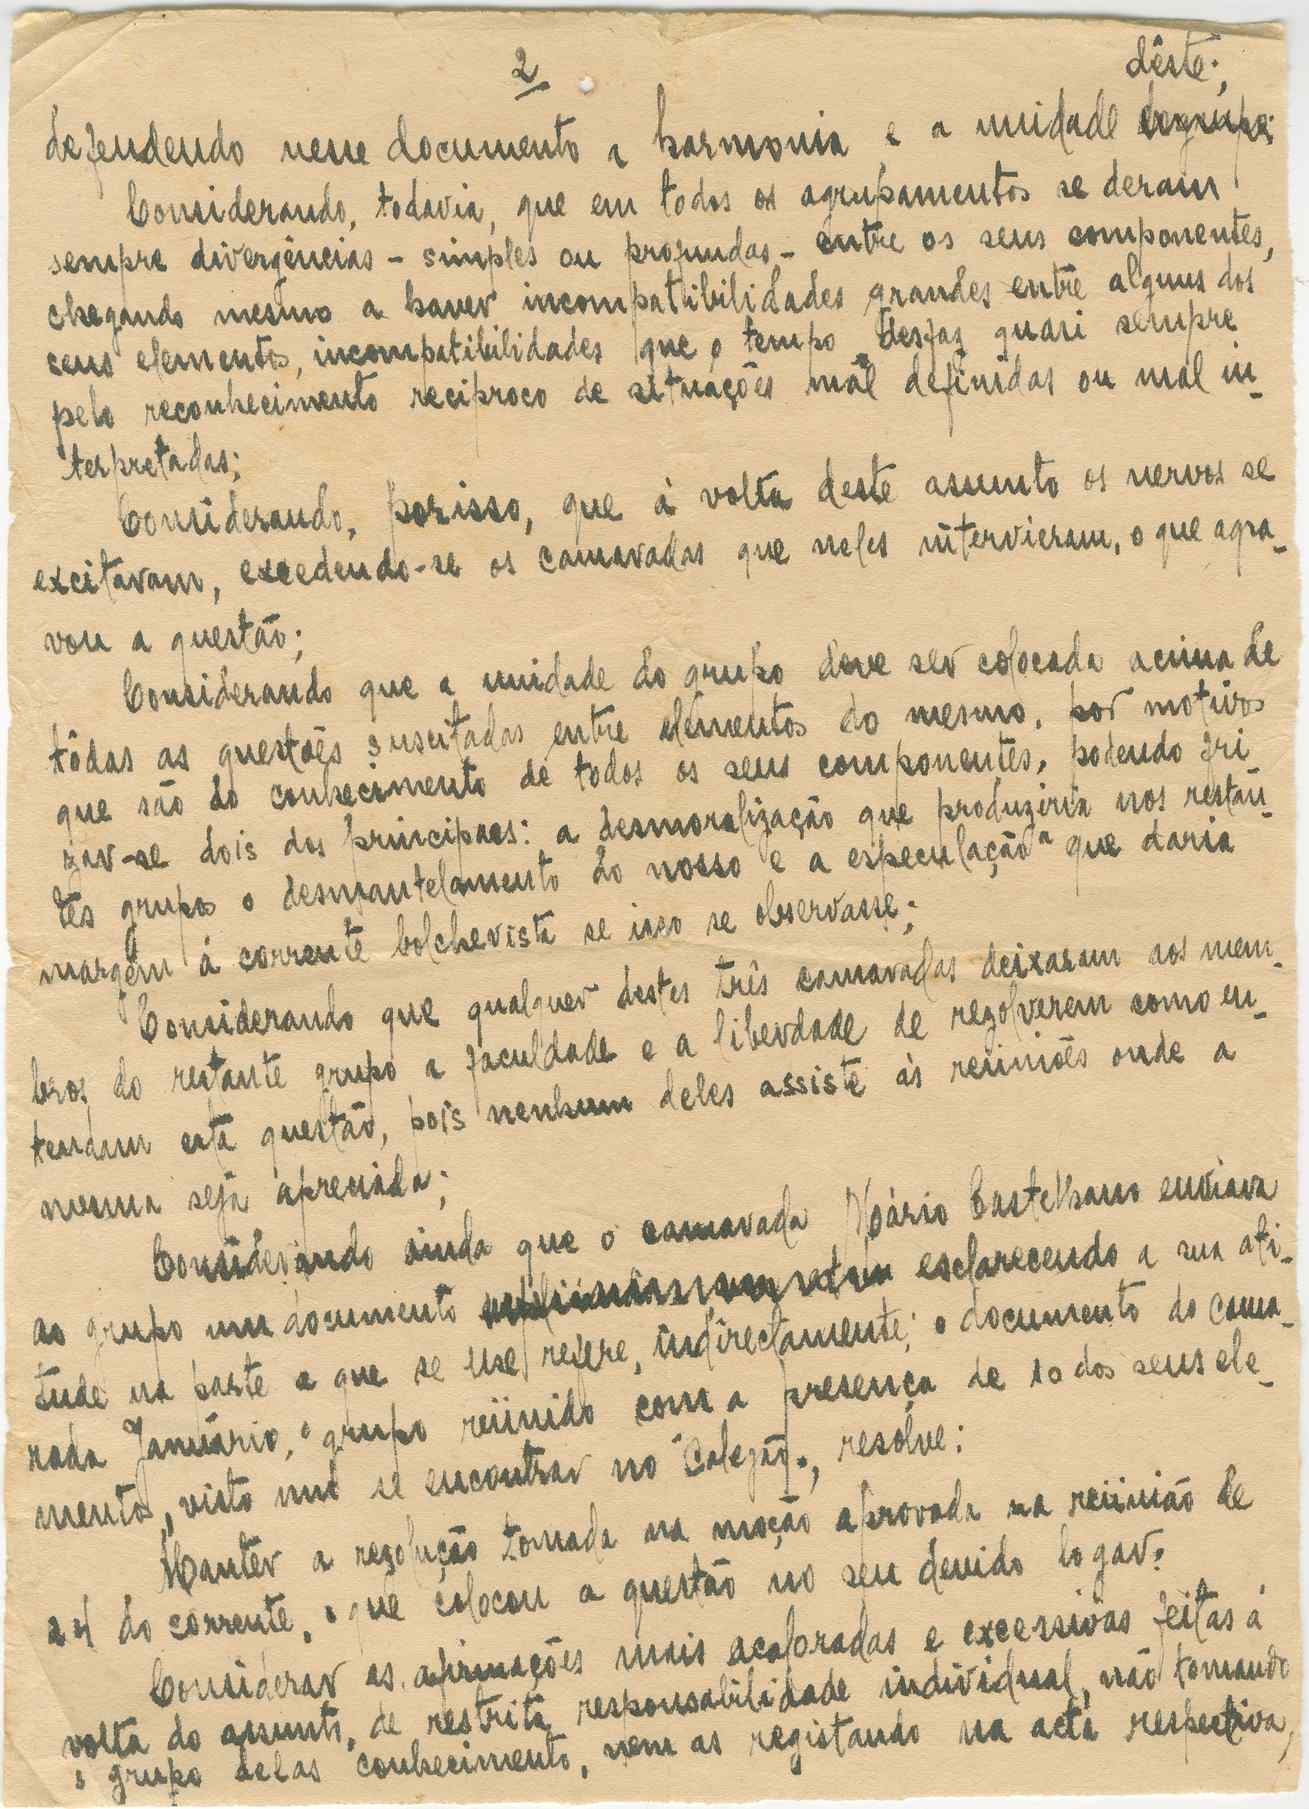 2
dêste;
defendendo nesse documento a harmonia e a unidade do grupo;
Considerando, todavia, que em todos os agrupamentos se deram
sempre divergências - simples ou profundas - entre os seus componentes,
chegando mesmo a haver incompatibilidades grandes entre alguns dos
seus elementos, incompatibilidades que o tempo desfaz quasi sempre
pelo reconhecimento reciproco de situações mal definidas ou mal in-
terpretadas;
Considerando, porisso, que á volta deste assunto os nervos se
excitaram, excedendo-se os camaradas que neles intervieram, o que agra-
vou a questão;
Considerando que a unidade do grupo deve ser colocada acima de
tôdas as questões suscitadas entre elementos do mesmo, por motivos
que são do conhecimento de todos os seus componentes, podendo fri-
zar-se dois dos principaes: a desmoralização que produziria nos restan-
tes grupos o desmantelamento do nosso e a especulação a que daria
margem á corrente bolchevista se isso se observasse;
Considerando que qualquer destes três camaradas deixaram aos mem-
bros do restante grupo a faculdade e a liberdade de rezolverem como en-
tendam esta questão, pois nenhum deles assiste às reüniões onde a
mesma seja apreciada;
Considerando ainda que o camarada Mário Castelhano enviava
ao grupo um documento esclarecendo a sua ati-
tude na parte a que se lhe refere, indirectamente, o documento do cama-
rada Januário, o grupo reünido com a presença de 10 dos seus ele-
mentos, visto um se encontrar no "Calejão", resolve:
Manter a rezolução tomada na moção aprovada na reünião de
24 do corrente, o que colocou a questão no seu devido logar.
Considerar as afirmações mais acaloradas e excessivas feitas á
volta do assunto, de restrita responsabilidade individual, não tomando
o grupo delas conhecimento, nem as registando na acta respectiva,